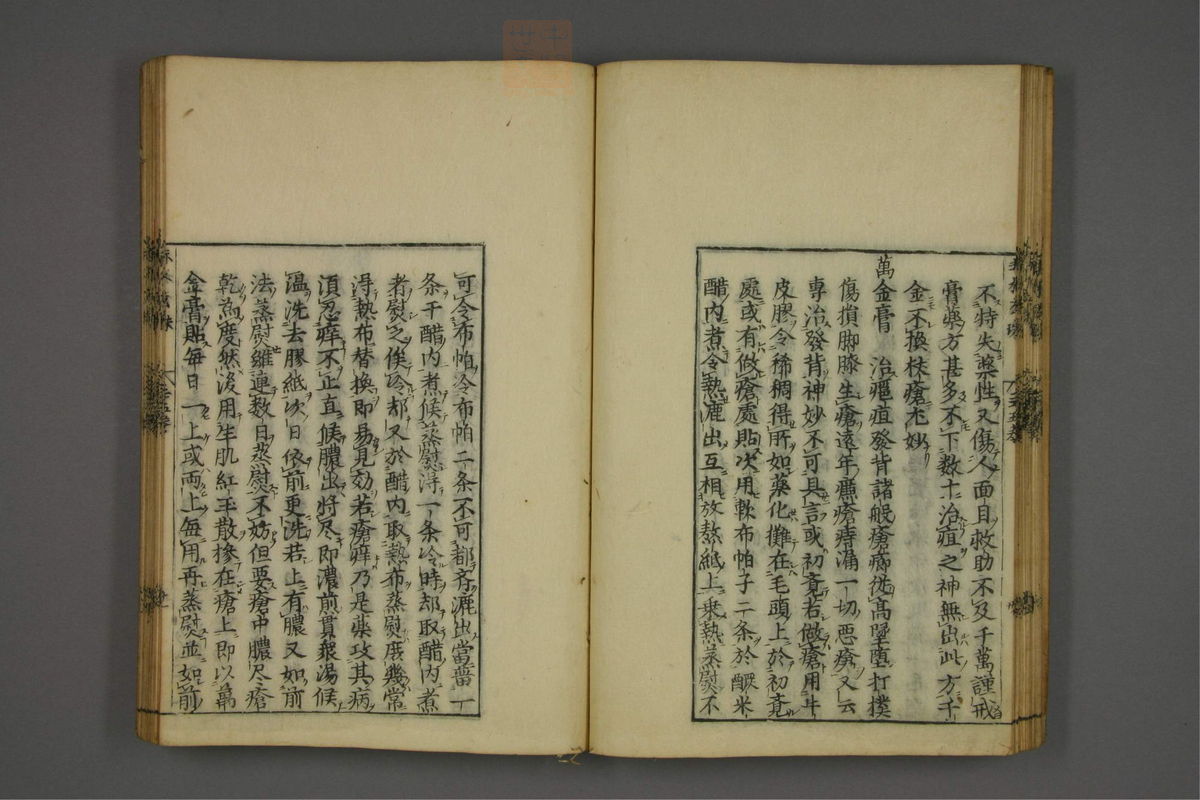 不特失薬性又傷人面目救助不及千萬謹戒
膏薬方甚多不下数十治疽之神無出此方千
金不換杖瘡尤妙
萬金膏　治癰疽發背諸般瘡癤従高墜堕打撲
傷損脚膝生瘡遠年臁瘡痔漏一切悪瘡又云
専治發背神妙不可具言或初覺若做瘡用牛
皮膠令稀稠得所如薬化攤在毛頭上於初覺
處或有做瘡處貼次用軟布帕子二条於釅米
醋内煮令熱漉出互相放熬紙上乗熱蒸熨不
可令布帕冷布帕二条不可都齊漉出當留一
条于醋内煮候蒸熨得一条冷時却取醋内煮
者熨之俟冷却又於醋内取熱布蒸熨庶幾常
得熱布替換即易見効若瘡痒乃是薬攻其病
須忍痒不止直候膿出将尽即濃煎貫衆湯候
温洗去膠紙次日依前更洗若上有膿又如前
法蒸熨雖連数日蒸熨不妨但要瘡中膿尽瘡
乾為度然後用生肌紅玉散摻在瘡上即以萬
金膏貼毎日一上或両上毎用再蒸熨並如前